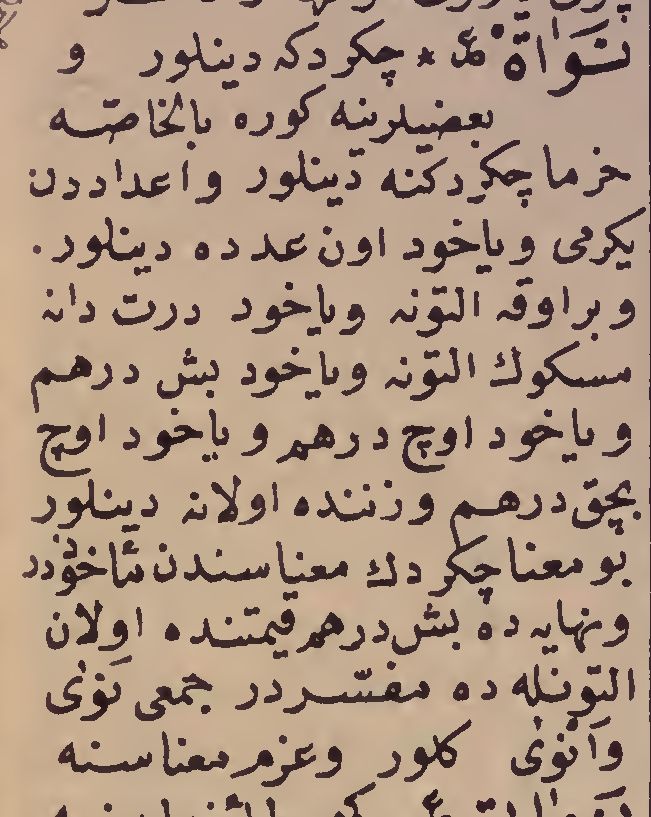 نَوَاةٌ * چکردکه دینلور و
بعضیلرینه کوره بالخاصّه
خرما چکردکنه دینلور و اعداددن
یکرمی و یاخود اون عدده دینلور.
و بر اوقه التونه و یاخود درت دانه
مسکوك التونه و یاخود بش درهم
و یاخود اوچ درهم و یاخود اوچ
بچق درهم وزننده اولانه دینلور
بو معنا چکردك معناسندن مأخوذدر
و نهایه ده بش درهم قیمتنده اولان
التونله ده مفسّردر جمعی نَوٰی
وَاَنْوٰی کلور و عزم معناسنه